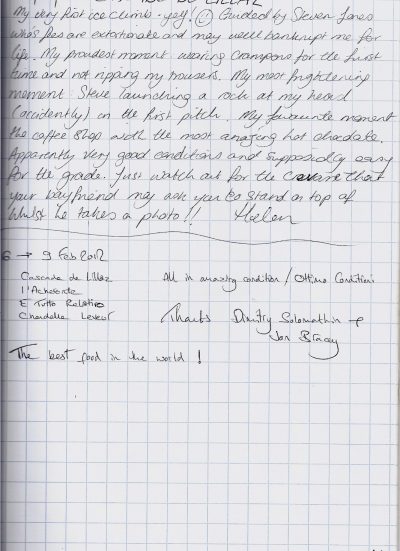 DE LILLAZ
My very first ice climb - yey! Guided by Steven Jones
who's fees are extortionate and may well bankrupt me for
life. My proudest moment wearing crampons for the first
time and not ripping my trousers. My most frightening
moment: Steve launching a rock at my head
(accidently) on the first pitch. My favourite moment
the coffee shop with the most amazing hot chocolate.
Apparently very good conditions and supposedly easy
for the grade. Just watch out for the that
your boyfriend may ask you to stand on top of
whilst he takes a photo!! Helen
6 → 9 Feb 2012
Cascade de Lillaz All in amazing condition / Ottime Condition
l'Acheronte
E Tutto Relativo
Chandelle Leveur
Thanks Dimitry Solomathin +
Jon Bracey
The best food in the world!